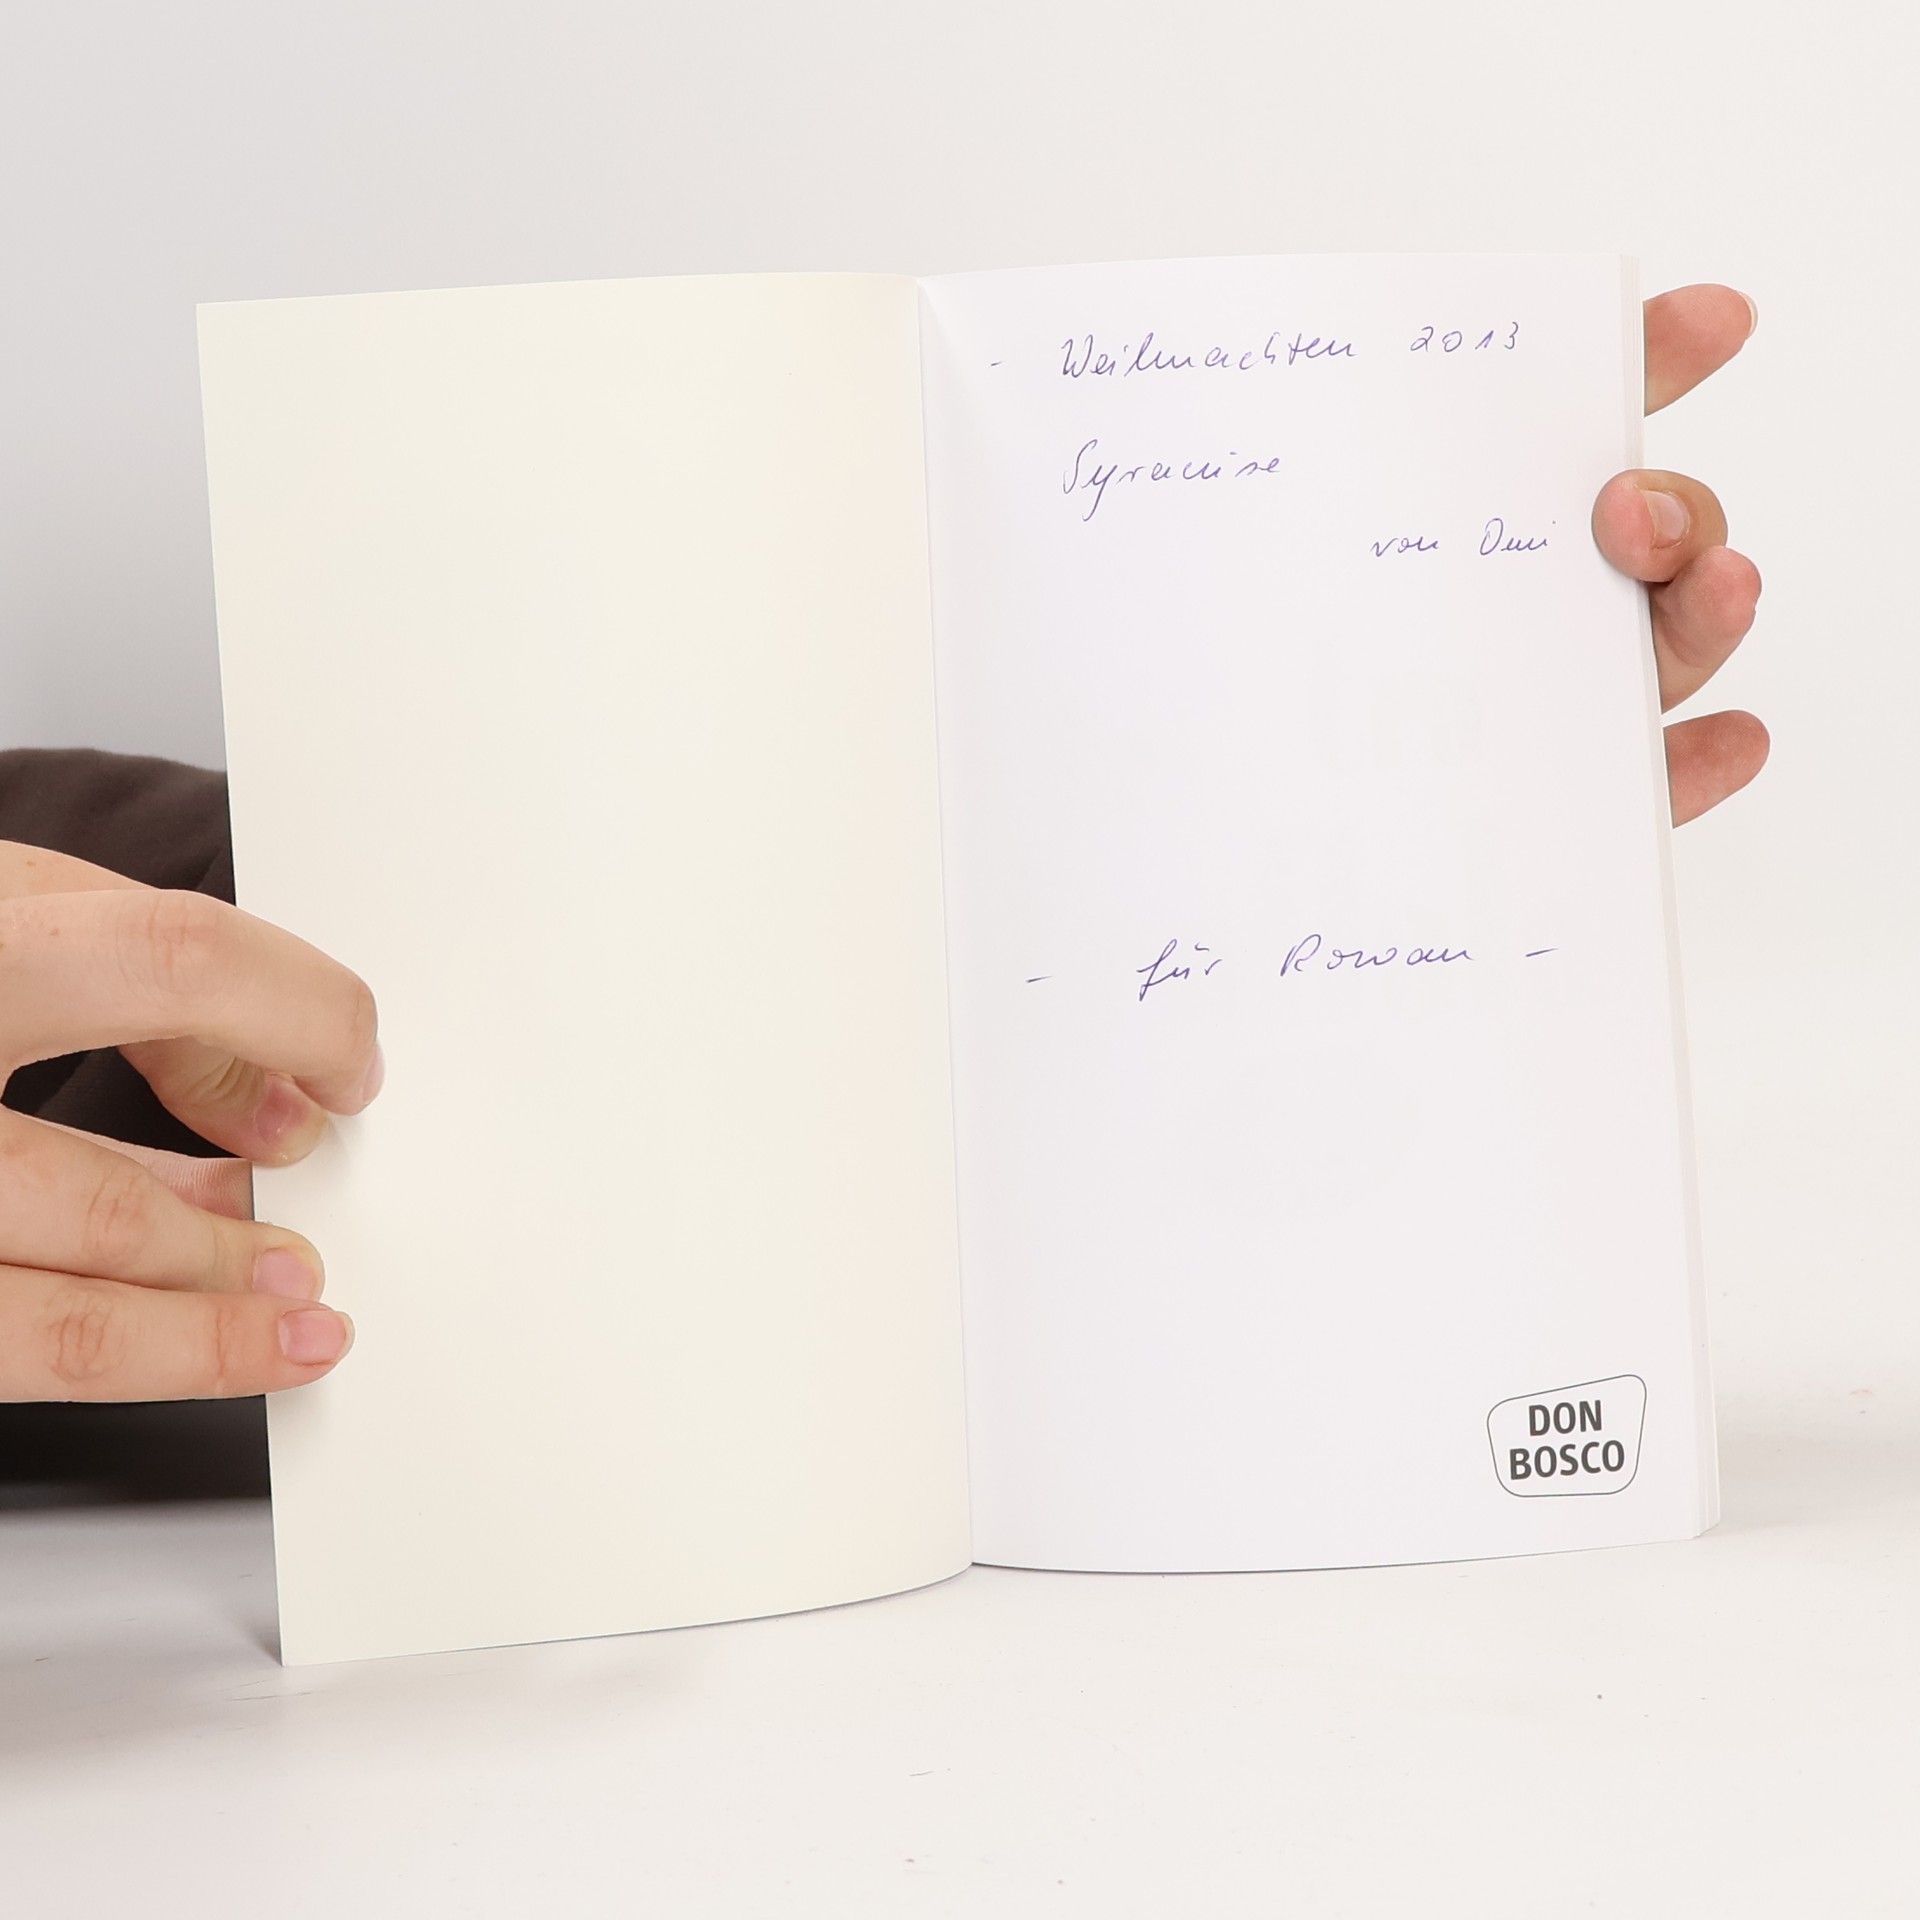 - Weihnachten 2013
Syracuse
von Omi
- für Rowan -
DON
BOSCO